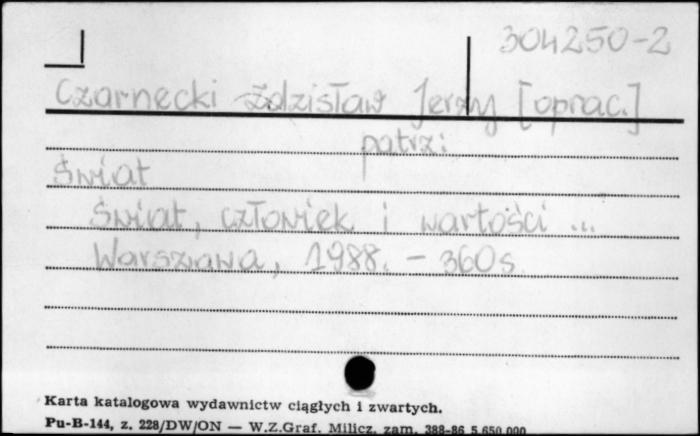 304250-2
Czarnecki Zdzisław Jerzy [oprac.]
patrz:
Świat
Świat, człowiek i wartości ...
Warszawa, 1988. - 360s.
Karta katalogowa wydawnictw ciągłych i zwartych.
Pu-B-144, z. 228/DW/ON — W.Z.Graf. Milicz, zam. 388-86 5.650.000